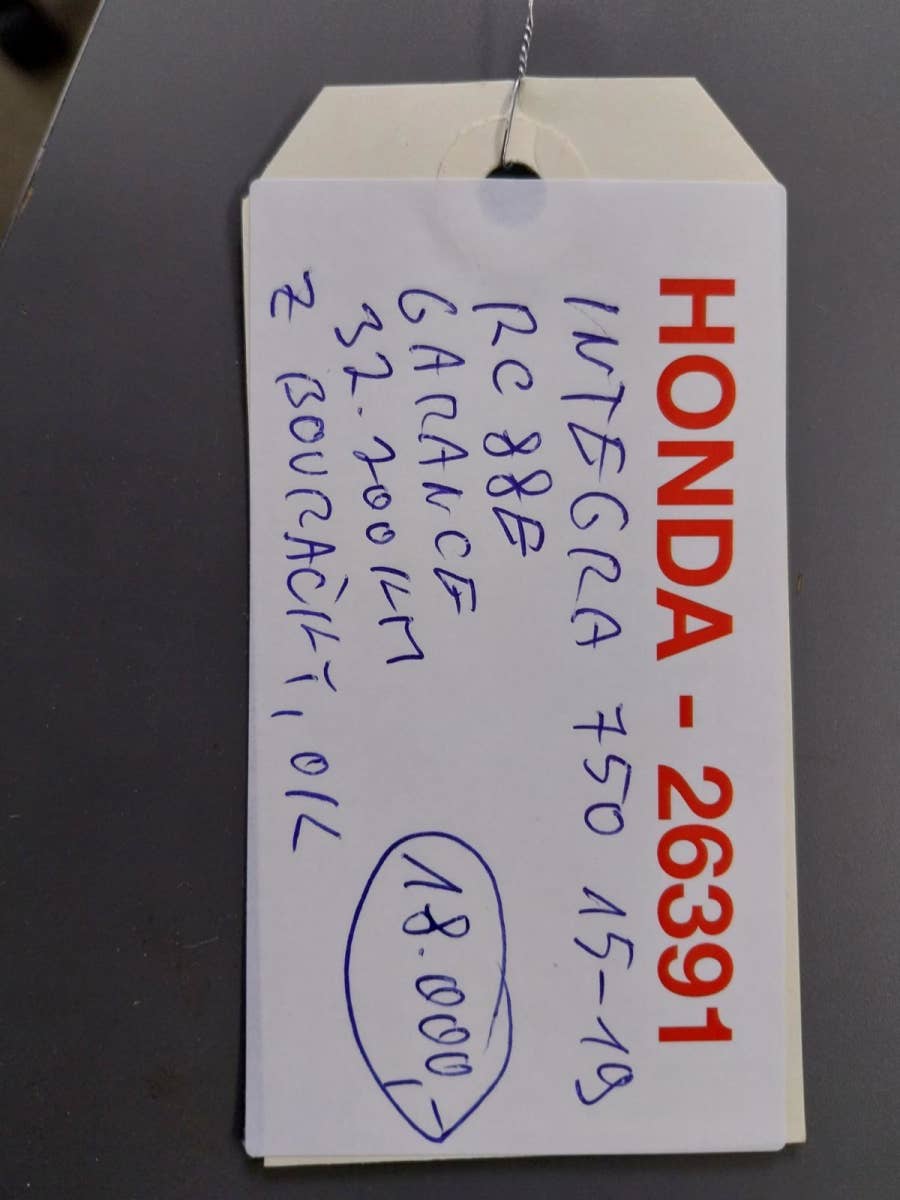 HONDA - 26391
INTEGRA 750 15-19
RC 88E
GARANCE
32.200 KM
18.000,-
Z BOURAČKY, OK